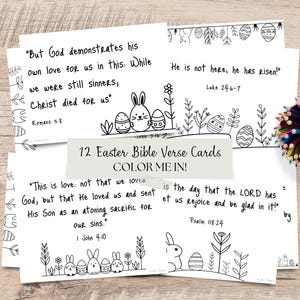 "But God demonstrates his
own love for us in this: While
we were still sinners,
Christ died for us"
Romans 5:8
He is not here, he has risen!"
Luke 24:6-7
12 Easter Bible Verse Cards
COLOR ME IN!
"This is love: not that we loved
God, but that He loved us and sent
His Son as an atoning sacrifice for
our sins."
1 John 4:10
is the day that the LORD has
let us rejoice and be glad in it!"
Psalm 118:24